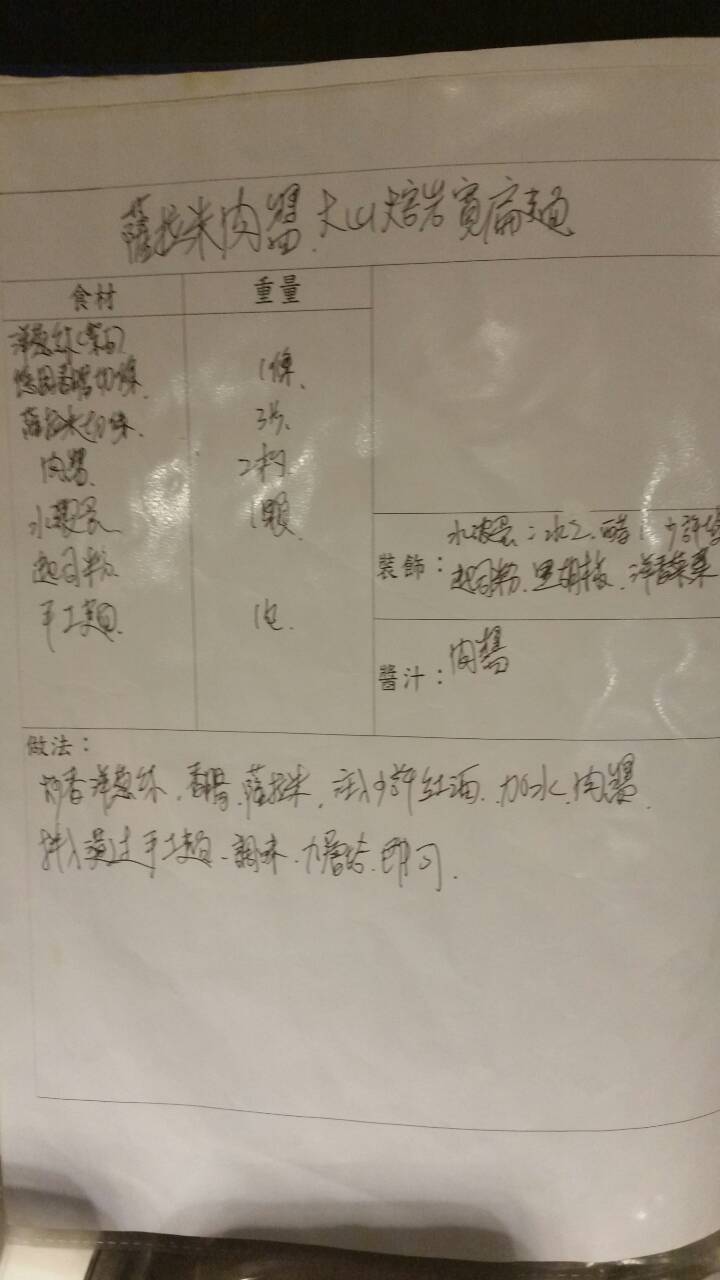 薩拉米肉醬火山熔岩寬扁麵
食材
重量
洋蔥絲(紫白)
德國香腸切條 1條
薩拉米切條 3片
肉醬 2杓
水波蛋 1顆
起司粉
手工麵 1包
裝飾：水波蛋：水2、醋1、少許鹽
起司粉、黑胡椒、洋香菜葉
醬汁：肉醬
做法：
炒香洋蔥絲、香腸、薩拉米、嗆入少許紅酒、加水、肉醬
拌入燙過手工麵、調味、即可